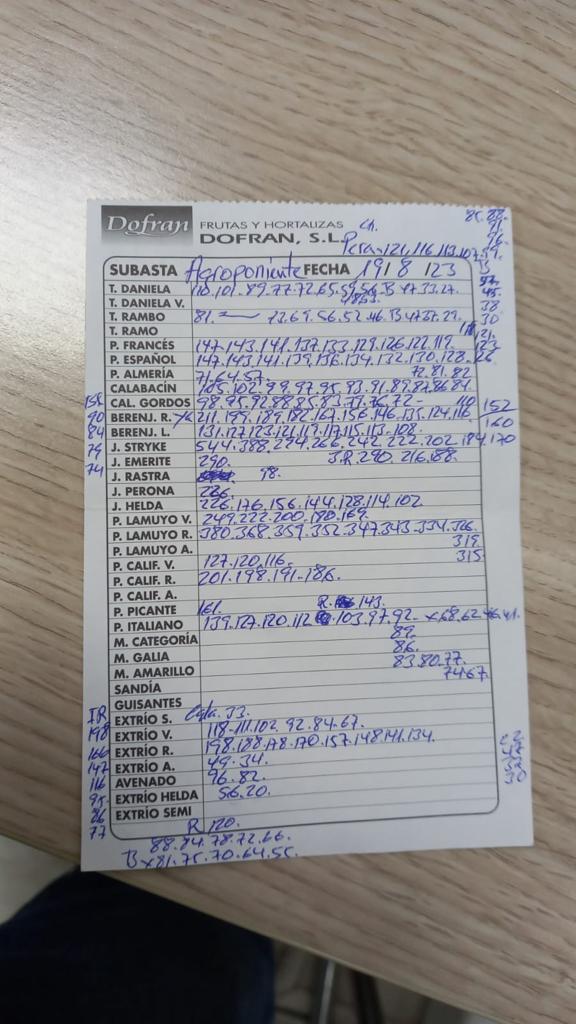 Dofran FRUTAS Y HORTALIZAS
DOFRAN, S.L. Pera-121.116.113.107.99.
SUBASTA Agroponiente FECHA 19/8/23
T. DANIELA 110.101.89.77.72.65.59.56.B 47.33.27.
T. DANIELA V.
T. RAMBO 81. 72.69.56.52.46.B
T. RAMO
P. FRANCÉS 147.143.141.137.133.129.126.122.119.
P. ESPAÑOL 147.143.141.139.136.134.132.130.128.126
P. ALMERÍA 71.64.57. 72.81.82
CALABACÍN 105.102.99.97.95.93.91.89.87.86.84
CAL. GORDOS 98.95.92.88.85.83. 76.72- 110 152
BERENJ. R. 211.199.189.182.167.156.146.135.124.116 160
BERENJ. L. 131.127.123.121.119.117.115.113.108.
J. STRYKE 544.388.274.266.242.222.202.184.170
J. EMERITE 290. J.R.290.216.188.
J. RASTRA 98.
J. PERONA 266.
J. HELDA 226.176.156.144.128.114.102
P. LAMUYO V. 249.222.200.180.169.
P. LAMUYO R. 380.368.359.352.347.343.334.326.
P. LAMUYO A. 319.
315
P. CALIF. V. 127.120.116.
P. CALIF. R. 201.198.191.186.
P. CALIF. A.
P. PICANTE 161. R. 143.
P. ITALIANO 139.127.120.112 .103.97.92.-x68.62.46.41.
M. CATEGORÍA 89.
M. GALIA 86.
M. AMARILLO 83.80.77.
74.67.
SANDÍA
GUISANTES
EXTRÍO S. 33.
EXTRÍO V. 118.111.102.92.84.67.
EXTRÍO R. 198.188.178.170.157.148.141.134.
EXTRÍO A. 49.34.
AVENADO 96.82.
EXTRÍO HELDA 56.20.
EXTRÍO SEMI
R 120.
88.84.78.72.66.
Bx81.75.70.64.55.
90
84
79
74
IR
198
166
147
116
95.
86
77
38
30